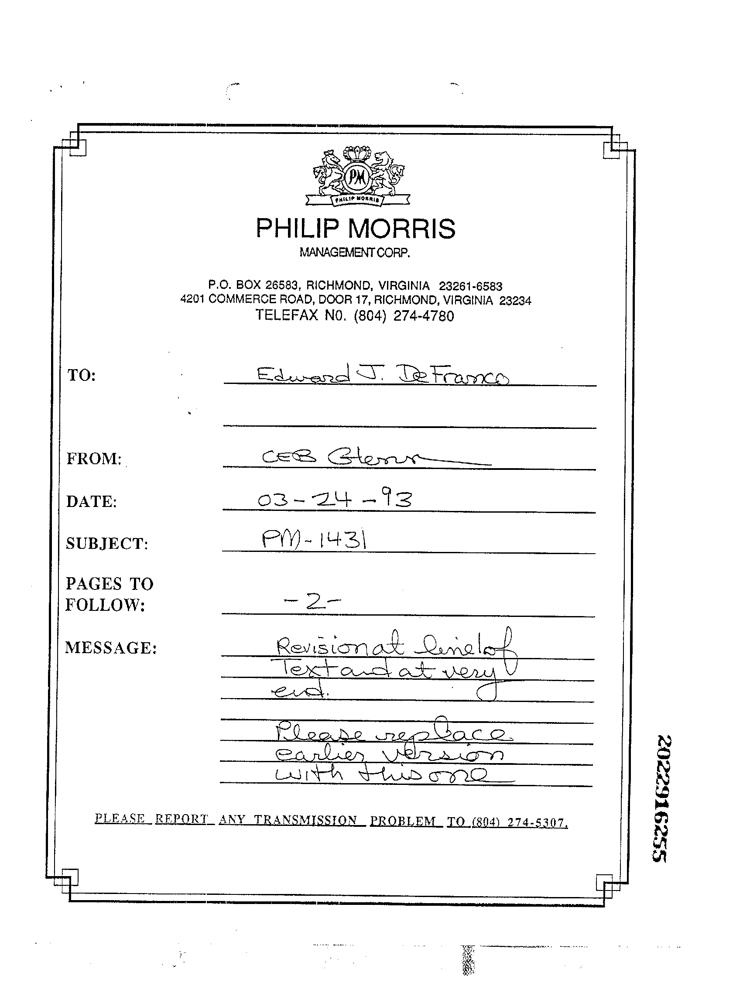 PM
PHILIP MORRIS
PHILIP MORRIS
MANAGEMENT CORP.
P.O. BOX 26583, RICHMOND, VIRGINIA 23261-6583
4201 COMMERCE ROAD, DOOR 17, RICHMOND, VIRGINIA 23234
TELEFAX NO. (804) 274-4780
TO: Edward J. DeFranco
FROM: CEB Glenn
DATE: 03-24-93
SUBJECT: PM-1431
PAGES TO
FOLLOW: -2-
MESSAGE: Revision at line 1 of
Text and at very
end.
Please replace
earlier version
with this one
PLEASE REPORT ANY TRANSMISSION PROBLEM TO (804) 274-5307.
2022916255